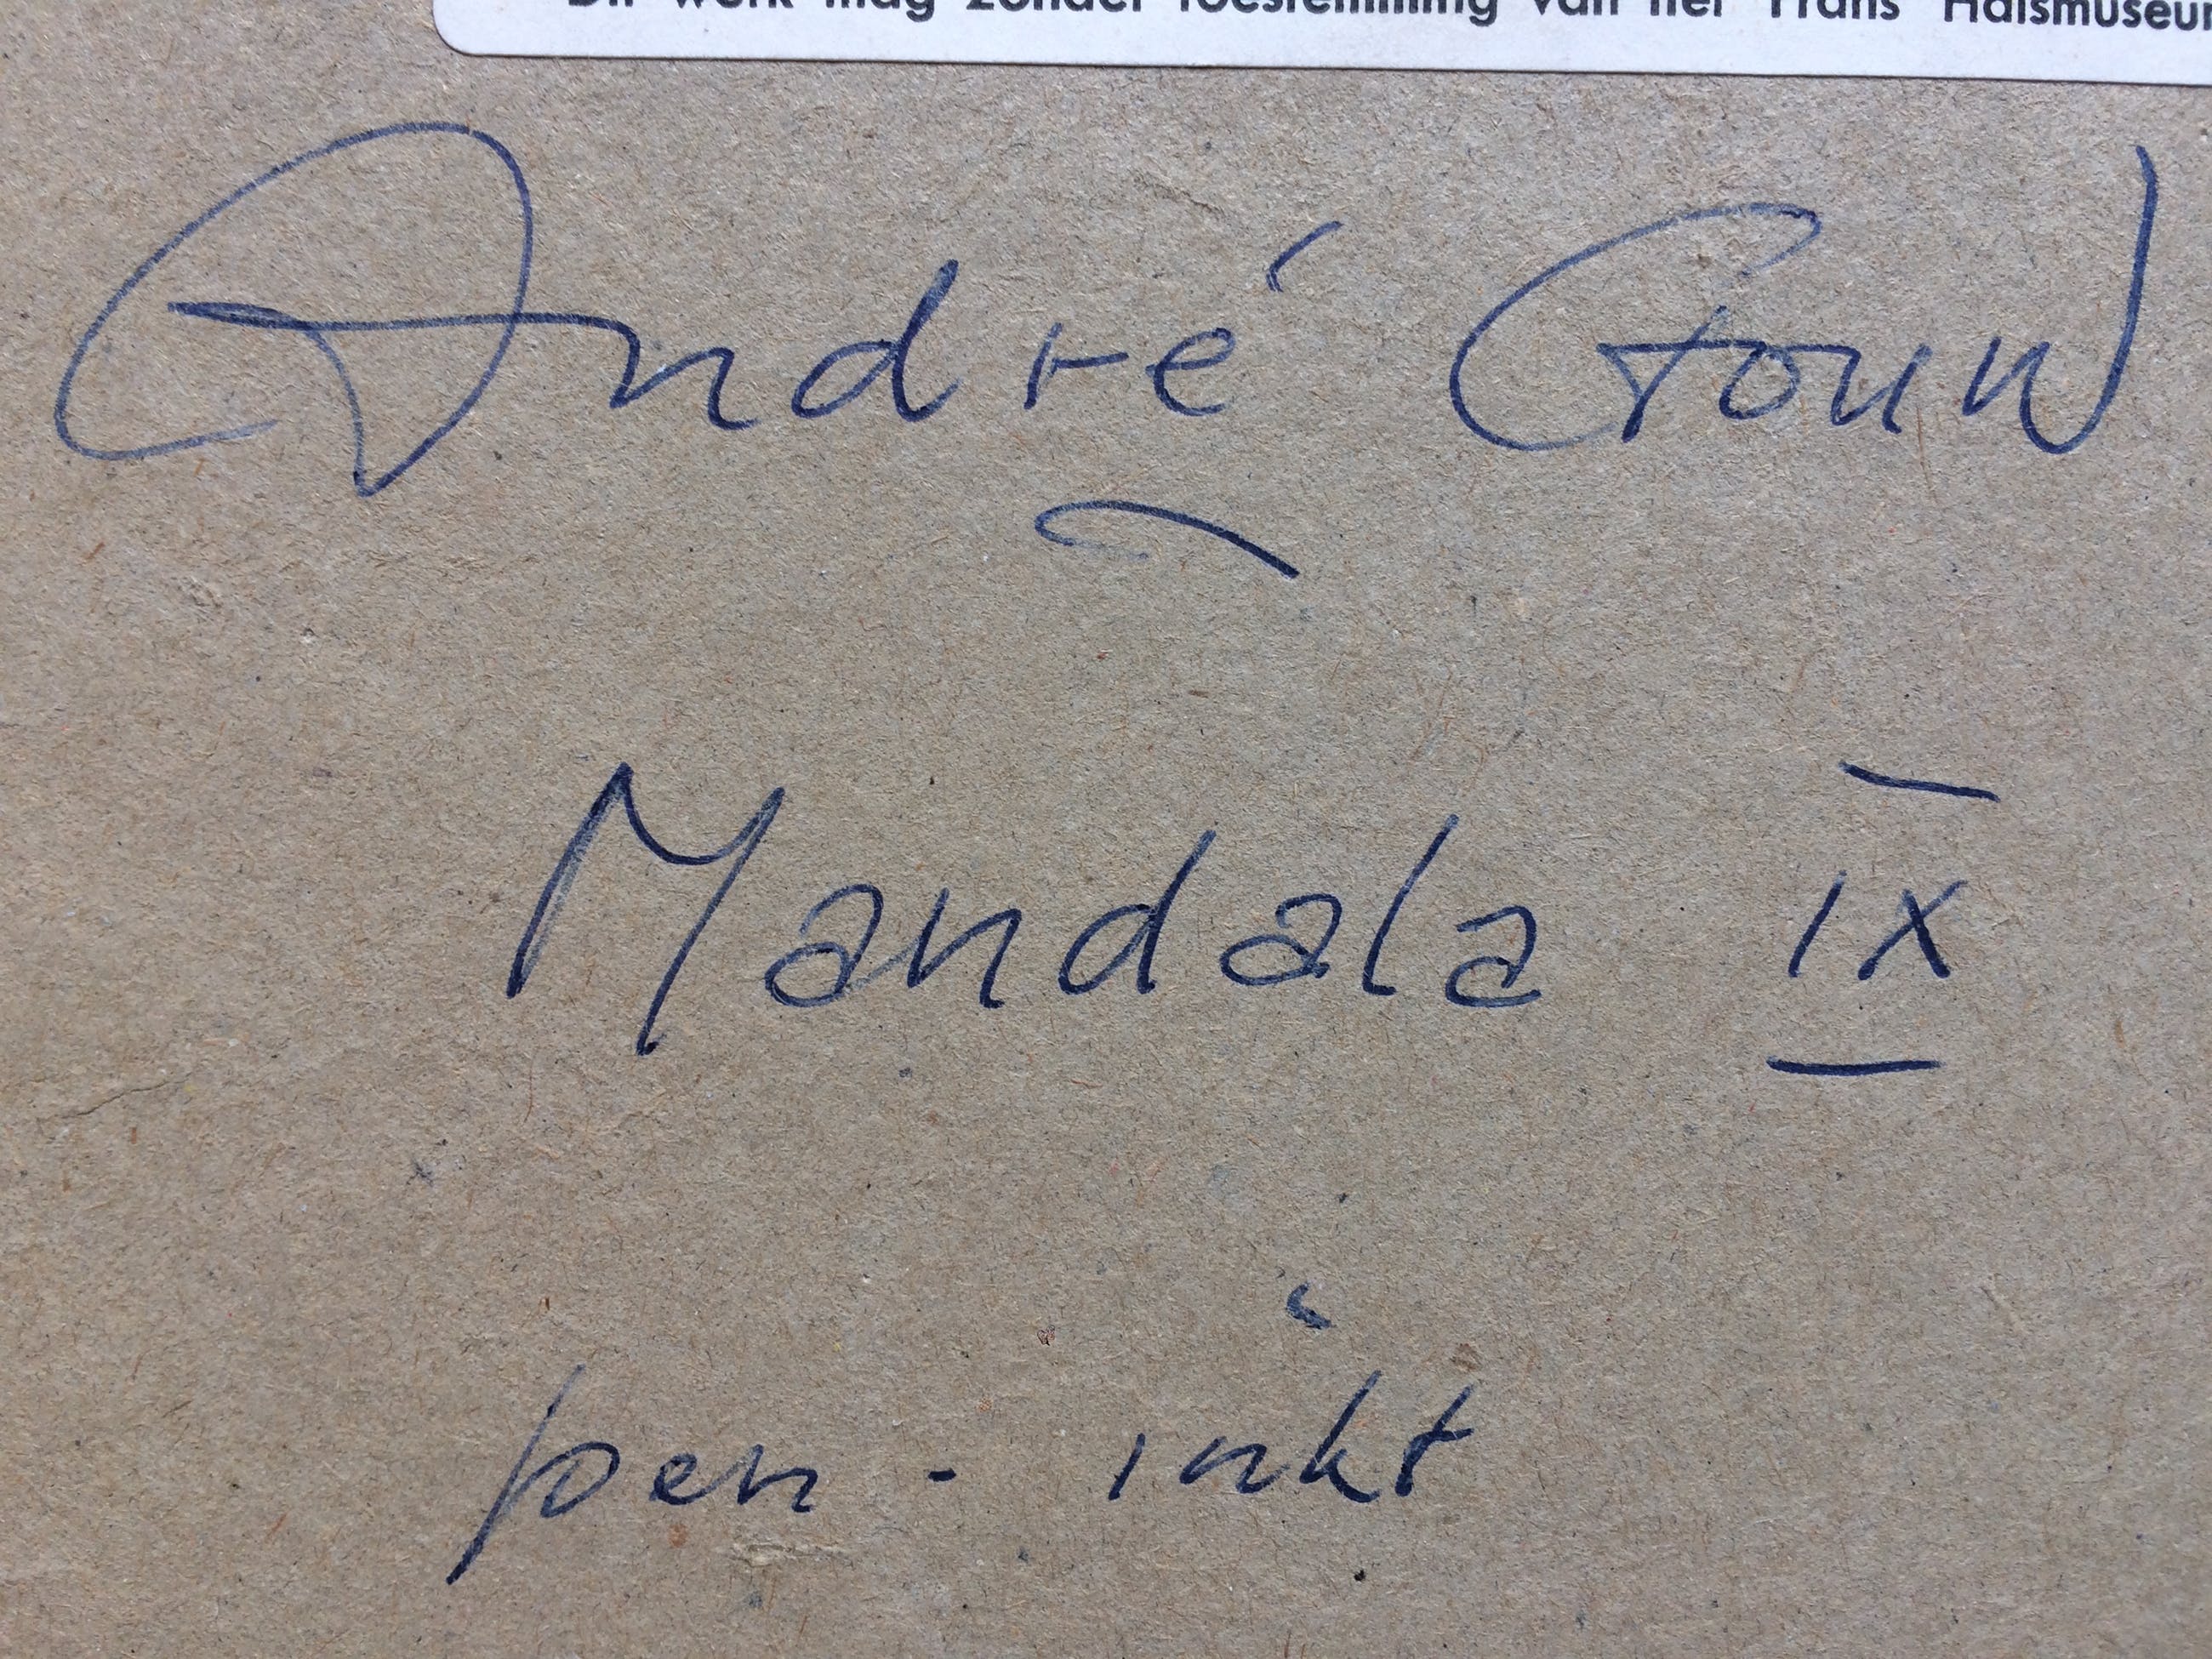 Dit werk mag zonder toestemming van het Frans Halsmuseum
André Gouw
Mandala IX
pen - inkt